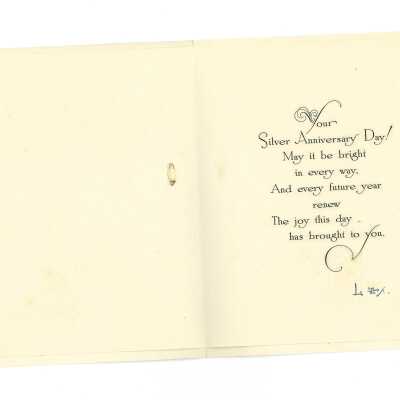 Your
Silver Anniversary Day!
May it be bright
in every way,
And every future year
renew
The joy this day
has brought to you.